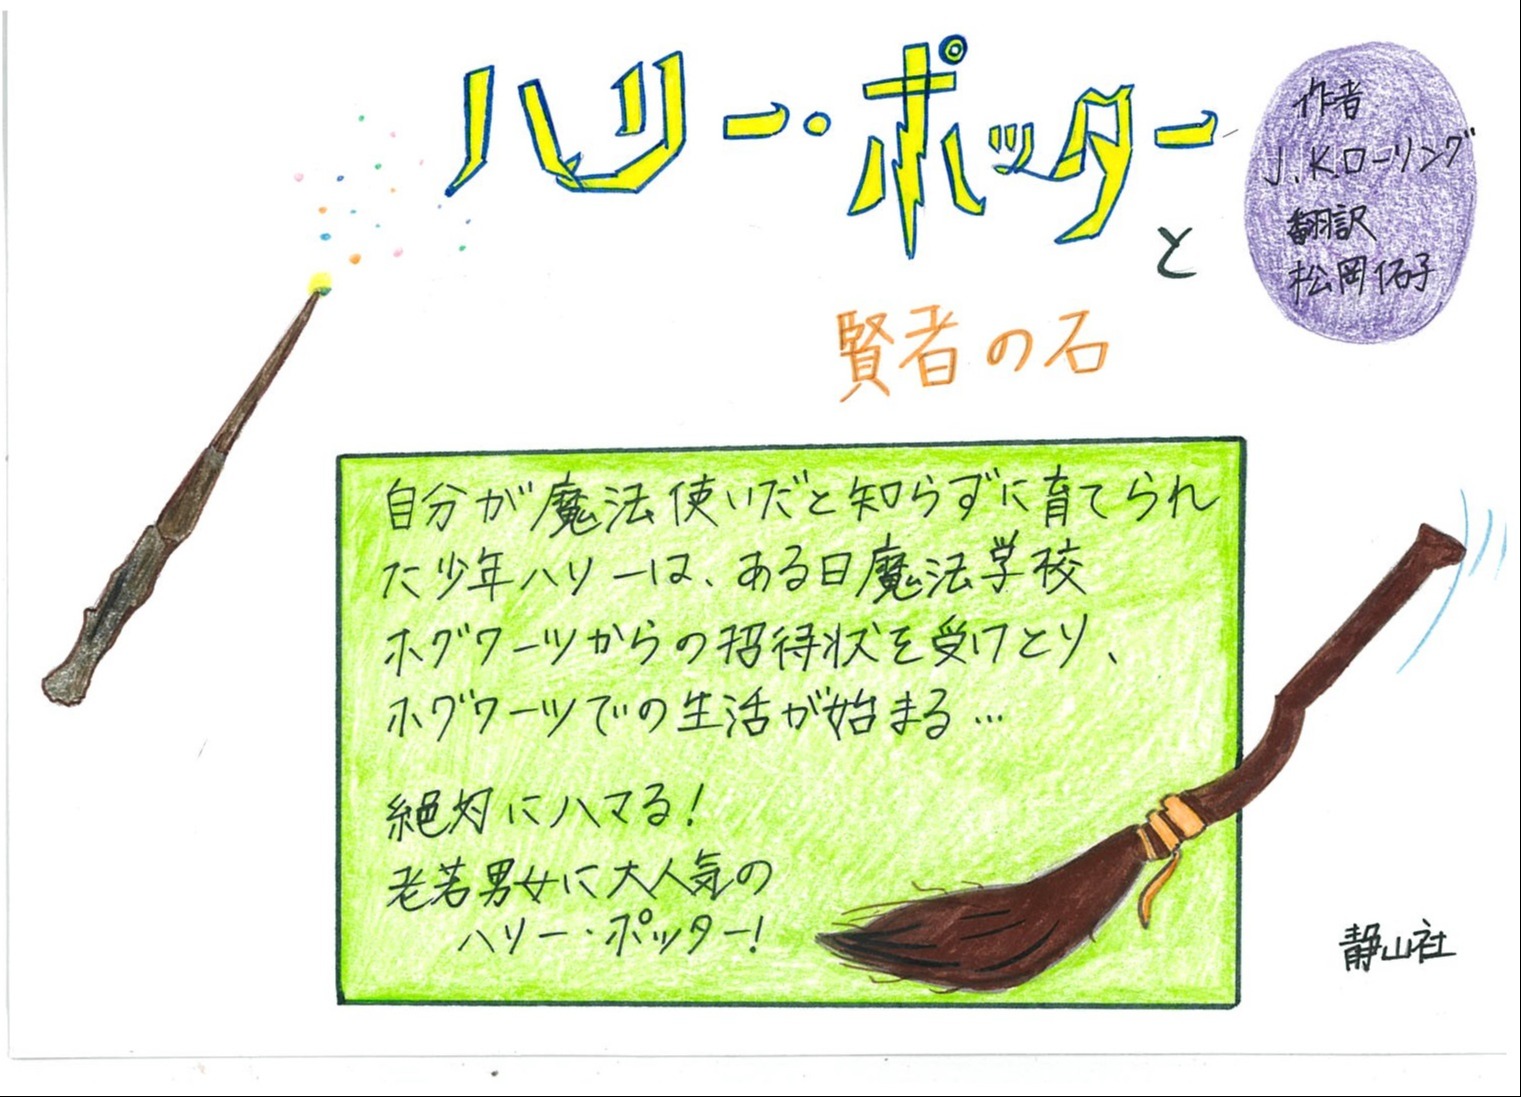 ハリー・ポッター
と
賢者の石
作者
J.K.ローリング
翻訳
松岡佑子
自分が魔法使いだと知らずに育てられ
た少年ハリーは、ある日魔法学校
ホグワーツからの招待状を受けとり、
ホグワーツでの生活が始まる…
絶対にハマる!
老若男女に大人気の
ハリー・ポッター!
静山社